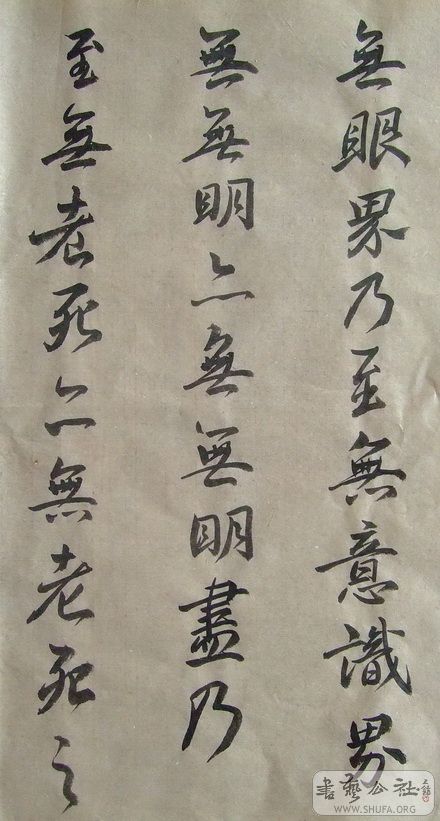 無眼界乃至無意識界
無無明亦無無明盡乃
至無老死亦無老死之
書藝公社
WWW.SHUFA.ORG